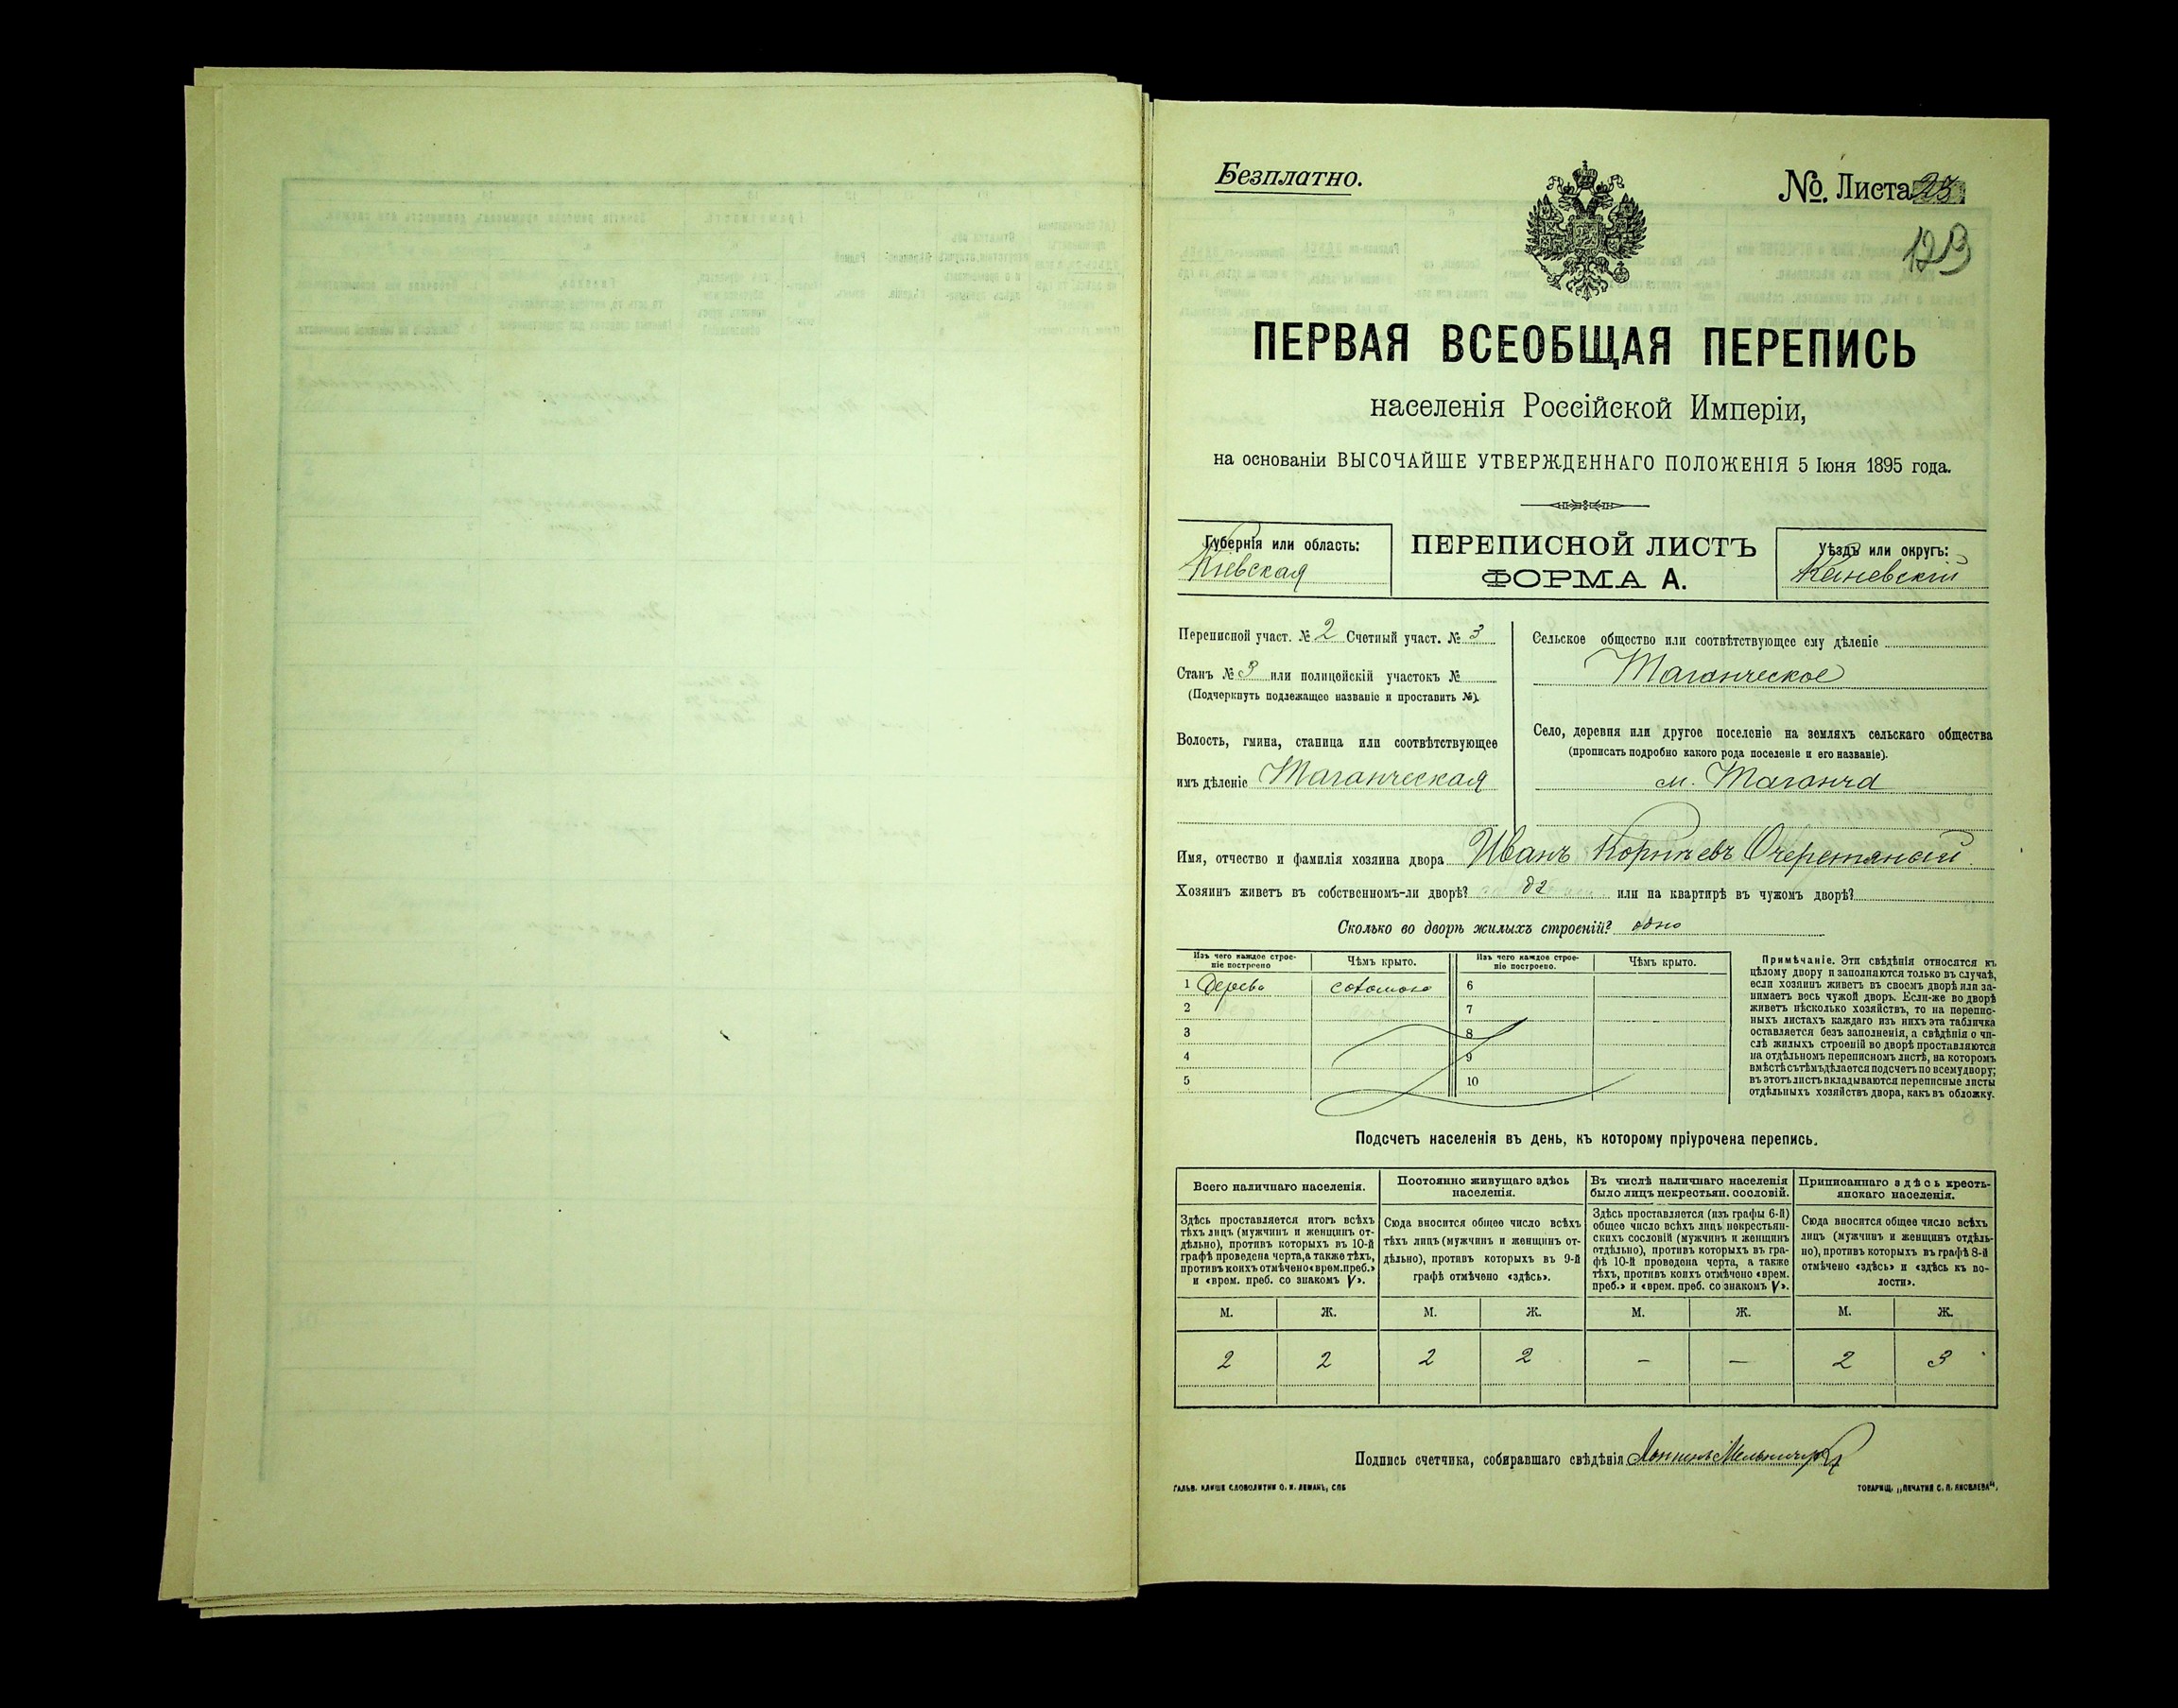 Безплатно.
№. Листа 23
123
ПЕРВАЯ ВСЕОБЩАЯ ПЕРЕПИСЬ
населенія Россійской Имперіи,
на основаніи ВЫСОЧАЙШЕ УТВЕРЖДЕННАГО ПОЛОЖЕНІЯ 5 Іюня 1895 года.
Губернія или область:
Кіевская
ПЕРЕПИСНОЙ ЛИСТЪ
ФОРМА А.
Уѣздъ или округъ:
Каневскій
Переписной участ. № 2 Счетный участ. № 3
Станъ № 3 или полицейскій участокъ №
(Подчеркнуть подлежащее названіе и проставить №).
Волость, гмина, станица или соотвѣтствующее
имъ дѣленіе Таганческая
Сельское общество или соотвѣтствующее ему дѣленіе
Таганческое
Село, деревня или другое поселеніе на земляхъ сельскаго общества
(прописать подробно какого рода поселеніе и его названіе).
м. Таганча
Имя, отчество и фамилія хозяина двора Иванъ Корнѣевъ Очеретяный
Хозяинъ живетъ въ собственномъ-ли дворѣ? да или на квартирѣ въ чужомъ дворѣ?
Сколько во дворѣ жилыхъ строеній? одно
Изъ чего каждое строе-
ніе построено
Чѣмъ крыто.
Изъ чего каждое строе-
ніе построено.
Чѣмъ крыто.
1 Дерева соломою 6
2 7
3 8
4 9
5 10
Примѣчаніе. Эти свѣдѣнія относятся къ
цѣлому двору и заполняются только въ случаѣ,
если хозяинъ живетъ въ своемъ дворѣ или за-
нимаетъ весь чужой дворъ. Если-же во дворѣ
живетъ нѣсколько хозяйствъ, то на перепис-
ныхъ листахъ каждаго изъ нихъ эта табличка
оставляется безъ заполненія, а свѣдѣнія о чи-
слѣ жилыхъ строеній во дворѣ проставляются
на отдѣльномъ переписномъ листѣ, на которомъ
вмѣстѣ съ тѣмъ дѣлается подсчетъ по всему двору;
въ этотъ листъ вкладываются переписные листы
отдѣльныхъ хозяйствъ двора, какъ въ обложку.
Подсчетъ населенія въ день, къ которому пріурочена перепись.
Всего наличнаго населенія.
Здѣсь проставляется итогъ всѣхъ
тѣхъ лицъ (мужчинъ и женщинъ от-
дѣльно), противъ которыхъ въ 10-й
графѣ проведена черта, а также тѣхъ,
противъ коихъ отмѣчено «врем. преб.»
и «врем. преб. со знакомъ V».
Постоянно живущаго здѣсь
населенія.
Сюда вносится общее число всѣхъ
тѣхъ лицъ (мужчинъ и женщинъ от-
дѣльно), противъ которыхъ въ 9-й
графѣ отмѣчено «здѣсь».
Въ числѣ наличнаго населенія
было лицъ некрестьян. сословій.
Здѣсь проставляется (изъ графы 6-й)
общее число всѣхъ лицъ некрестьян-
скихъ сословій (мужчинъ и женщинъ
отдѣльно), противъ которыхъ въ гра-
фѣ 10-й проведена черта, а также
тѣхъ, противъ коихъ отмѣчено «врем.
преб.» и «врем. преб. со знакомъ V».
Приписаннаго здѣсь кресть-
янскаго населенія.
Сюда вносится общее число всѣхъ
лицъ (мужчинъ и женщинъ отдѣль-
но), противъ которыхъ въ графѣ 8-й
отмѣчено «здѣсь» и «здѣсь къ во-
лости».
М. Ж. М. Ж. М. Ж. М. Ж.
2 2 2 2 — — 2 3
Подпись счетчика, собиравшаго свѣдѣнія
ГАЛЬВ. КЛИШЕ СЛОВОЛИТНИ О. И. ЛЕМАНЪ, СПБ
ТОВАРИЩ. „ПЕЧАТНЯ С. П. ЯКОВЛЕВА“.